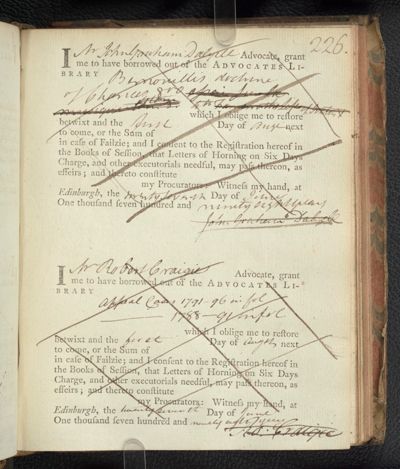 226.
I Mr John Graham Dalyell Advocate, grant
me to have borrowed out of the ADVOCATES LI-
BRARY Bernouilli's doctrine
of Chances 8vo
which I oblige me to restore
betwixt and the first Day of next
to come, or the Sum of
in case of Failzie; and I consent to the Registration hereof in
the Books of Session, that Letters of Horning on Six Days
Charge, and other executorials needful, may pass thereon, as
effeirs; and thereto constitute
my Procurators: Witness my hand, at
Edinburgh, the Day of June
One thousand seven hundred and ninety eight years
John Graham Dalyell
I Mr Robert Craigie Advocate, grant
me to have borrowed out of the ADVOCATES LI-
BRARY
appeal Cases 1791-96 in fol
1788- in fol
which I oblige me to restore
betwixt and the first Day of next
to come, or the Sum of
in case of Failzie; and I consent to the Registration hereof in
the Books of Session, that Letters of Horning on Six Days
Charge, and other executorials needful, may pass thereon, as
effeirs; and thereto constitute
my Procurators: Witness my hand, at
Edinburgh, the twenty seventh Day of June
One thousand seven hundred and ninety years
Ro. Craigie